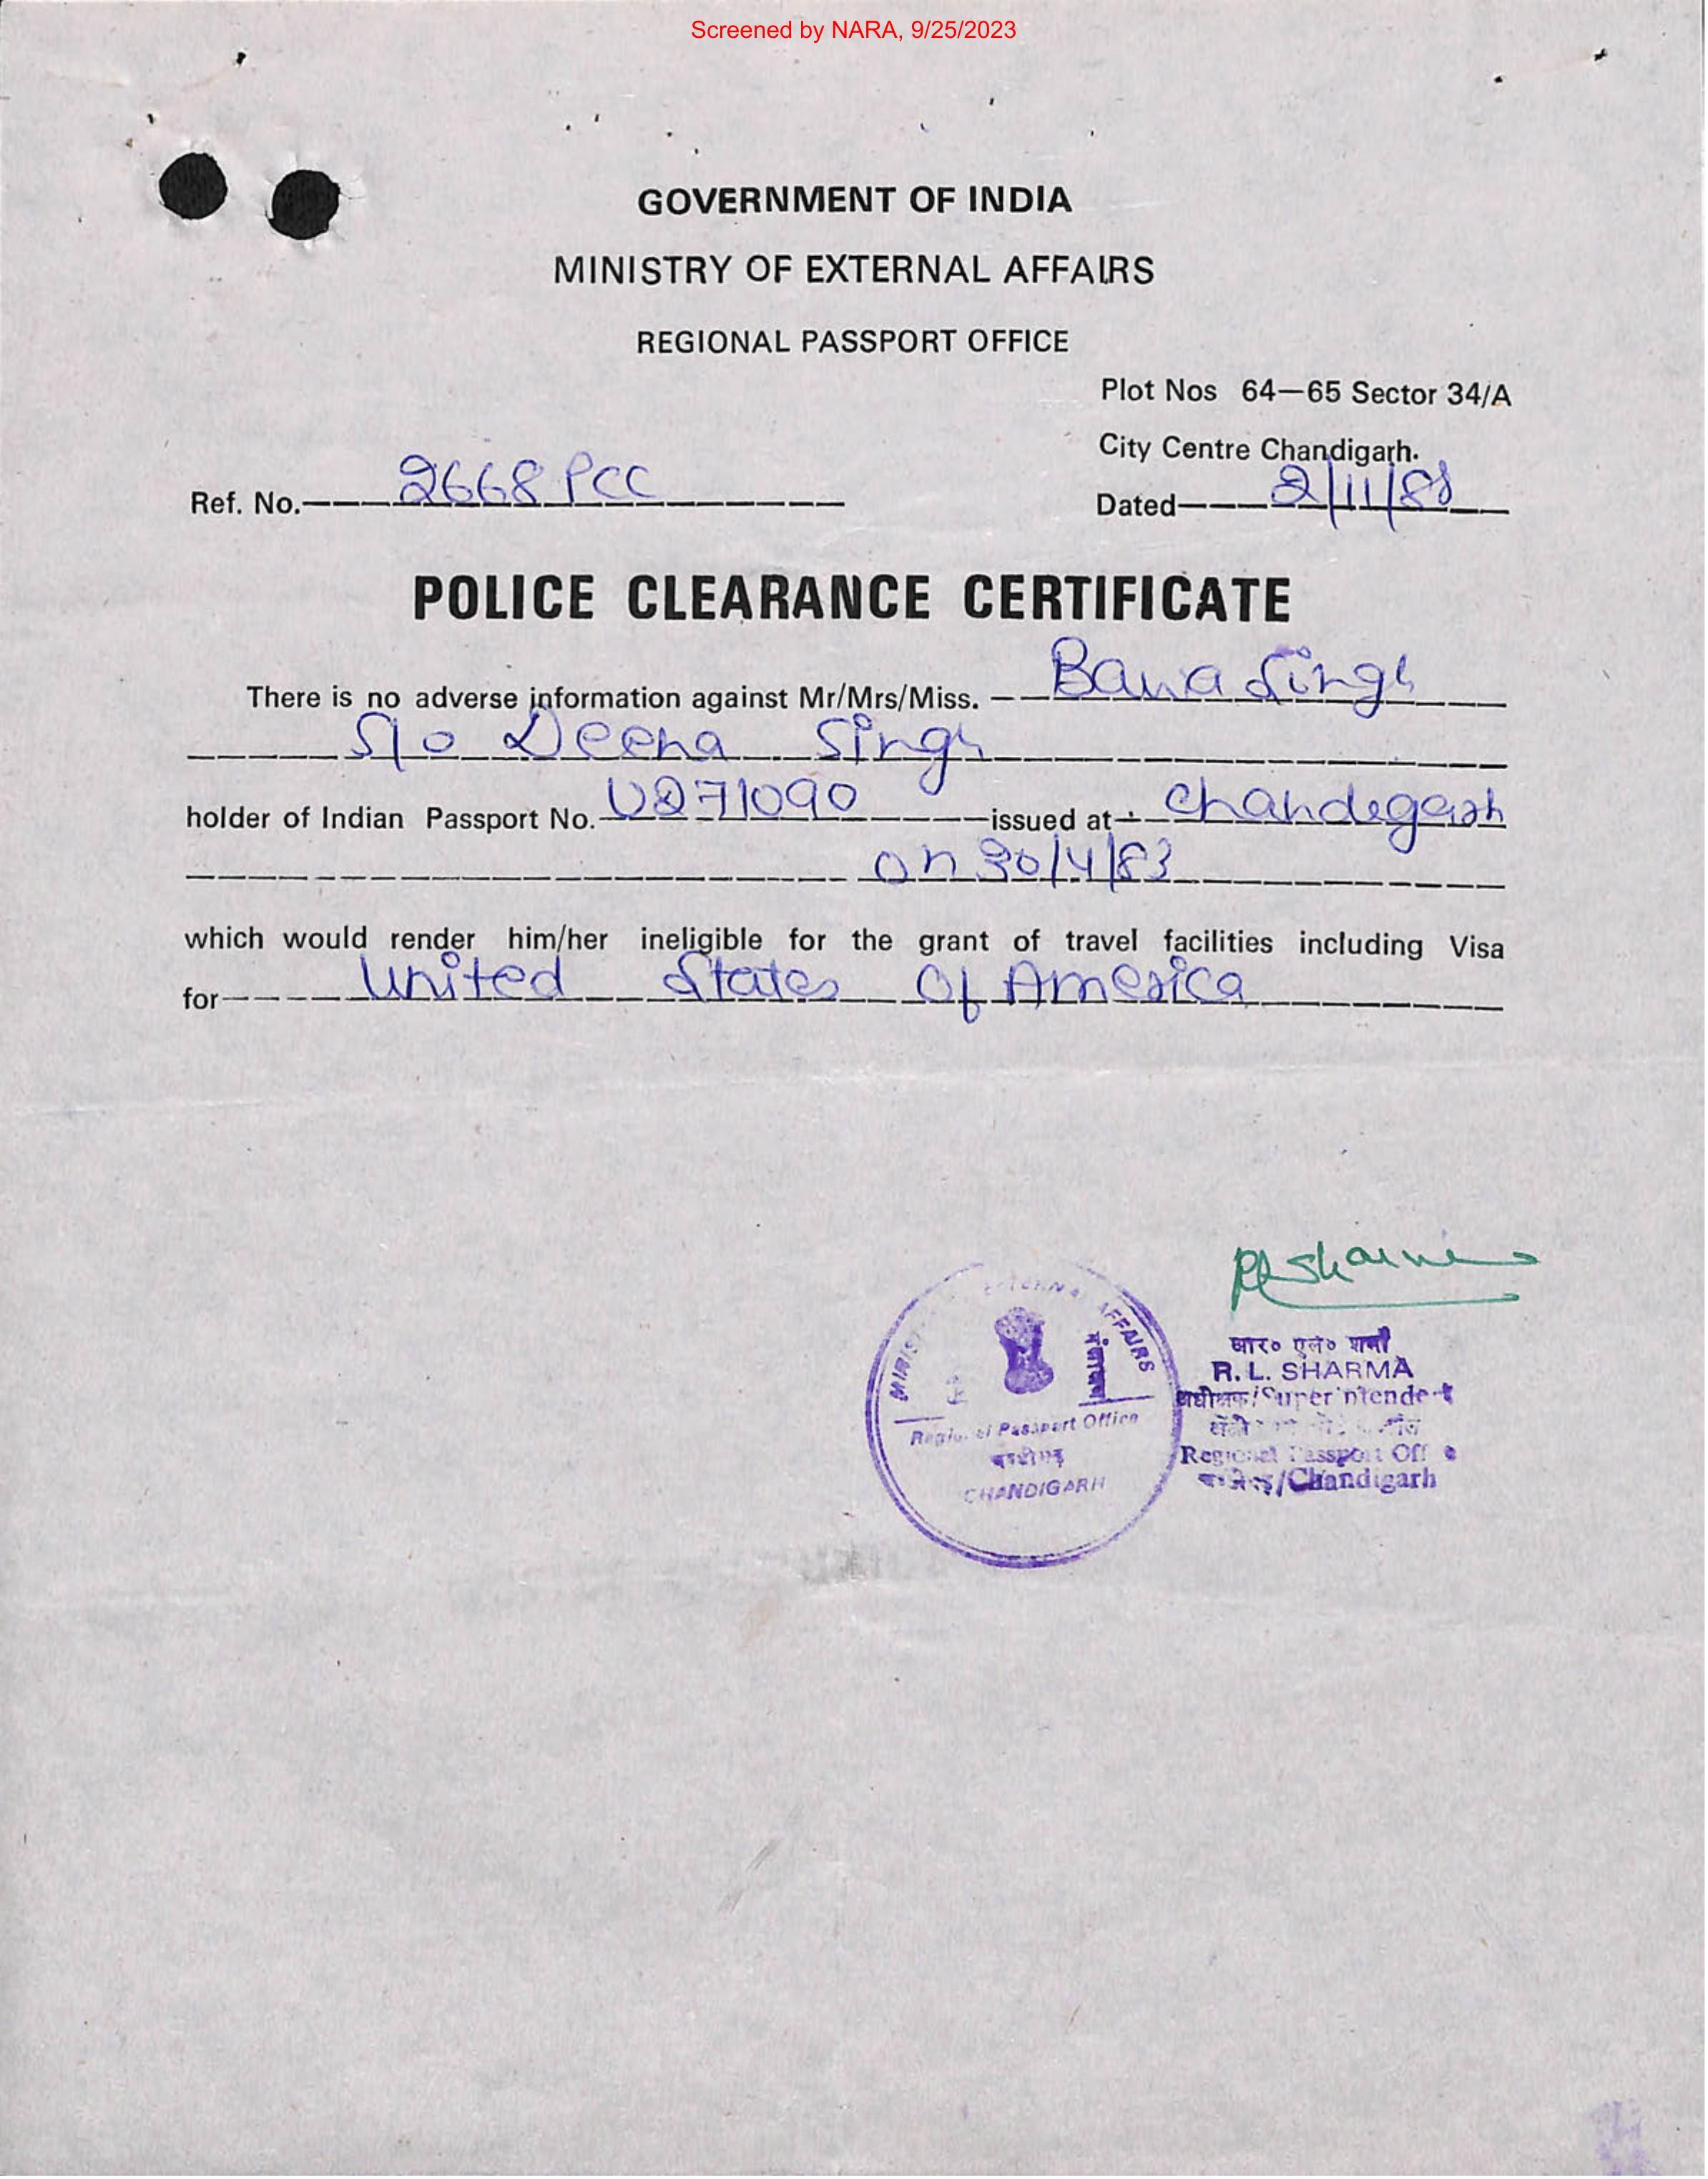 Screened by NARA, 9/25/2023
GOVERNMENT OF INDIA
MINISTRY OF EXTERNAL AFFAIRS
REGIONAL PASSPORT OFFICE
Plot Nos 64—65 Sector 34/A
City Centre Chandigarh.
Ref. No. 2668 PCC
Dated 2/11/88
POLICE CLEARANCE CERTIFICATE
There is no adverse information against Mr/Mrs/Miss. Bawa Singh
S/o Deena Singh
holder of Indian Passport No. U271090 issued at Chandigarh
on 30/4/83
which would render him/her ineligible for the grant of travel facilities including Visa
for United States Of America
RLSharma
आर० एल० शर्मा
R. L. SHARMA
अधीक्षक/Superintendent
Regional Passport Office
/Chandigarh
AFFAIRS
Regional Passport Office
चण्डीगढ़
CHANDIGARH